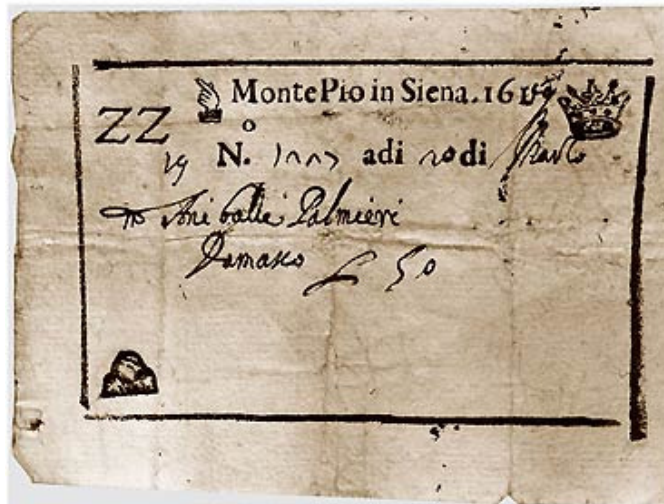 Monte Pio in Siena. 161
ZZ o
19 N. adi 20 di
Anibale Palmieri
Damasco £ 50